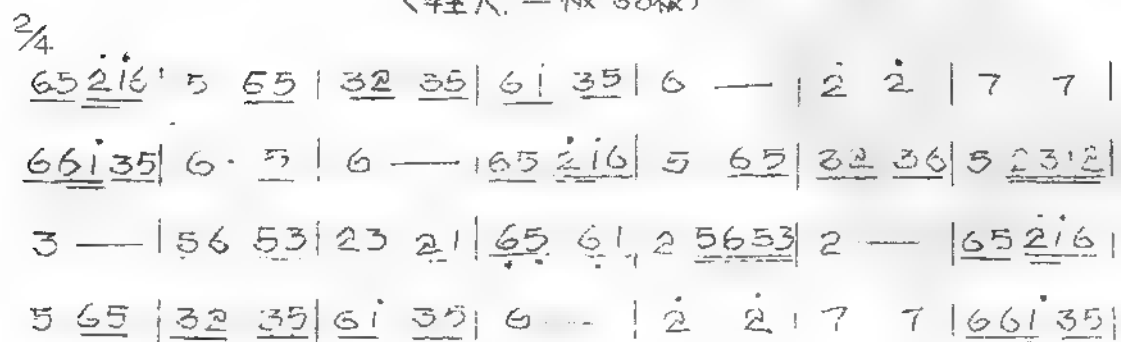 2/4
65 2̇1̇6 | 5 65 | 32 35 | 61̇ 35 | 6 — | 2̇ 2̇ | 7 7 |
661̇35 | 6· 5 | 6 — | 65 2̇1̇6 | 5 65 | 32 36 | 5 2312 |
3 — | 56 53 | 23 21 | 6̣5̣ 6̣1 | 2 5653 | 2 — | 65 2̇1̇6 |
5 65 | 32 35 | 61̇ 35 | 6 — | 2̇ 2̇ | 7 7 | 661̇35 |